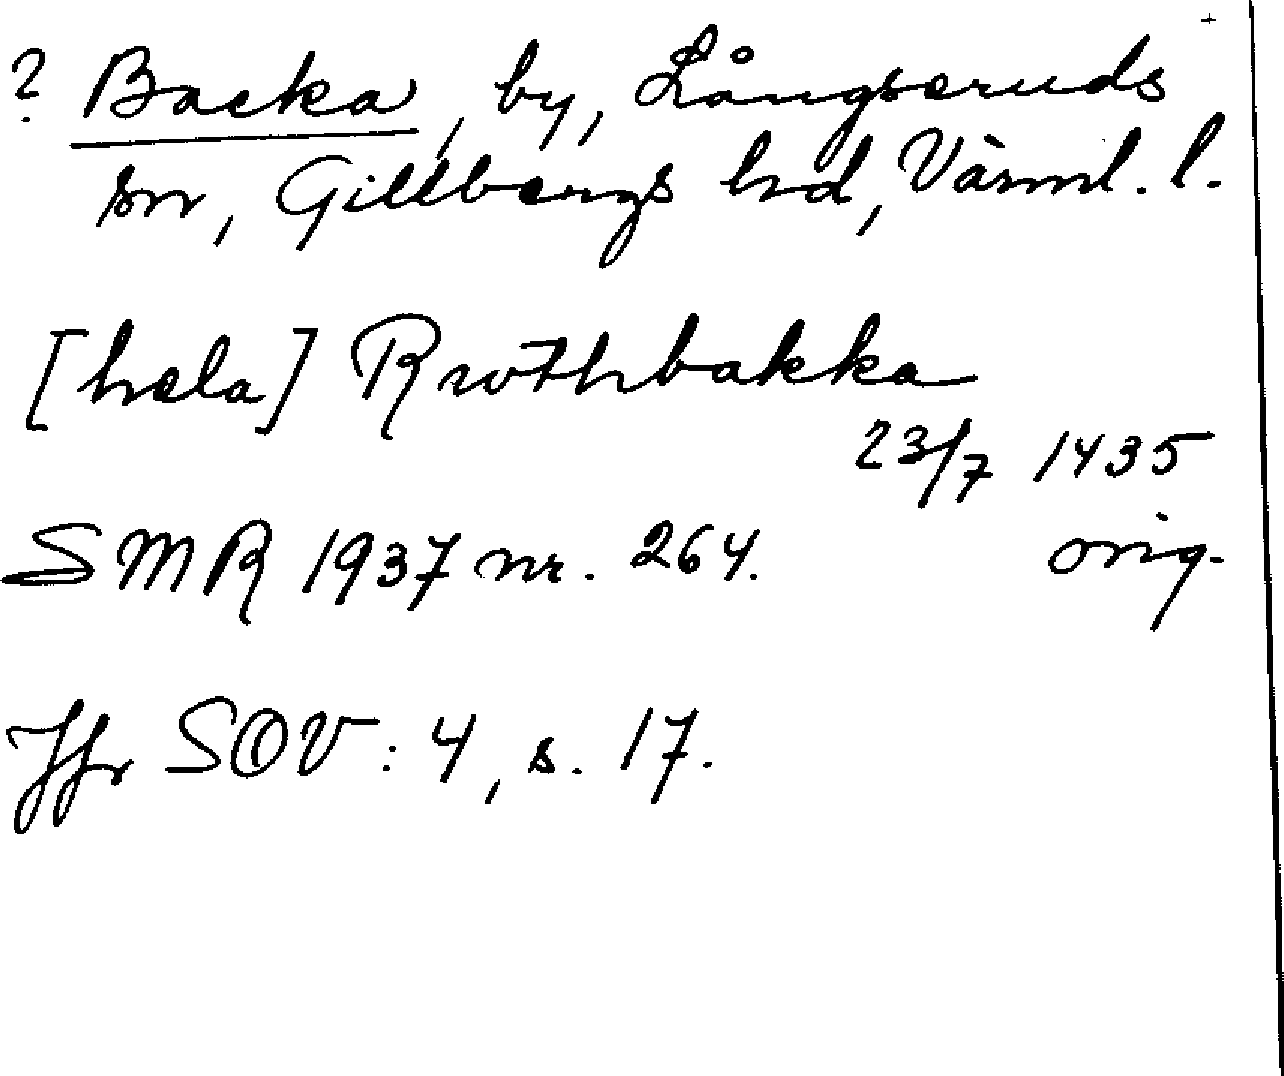 ? Backa, by, Långseruds
sn, Gillbergs hd, Värml. l.
[hela] Rwthbakka
23/7 1435
SMR 1937 nr. 264. orig.
Jfr SOV: 4, s. 17.